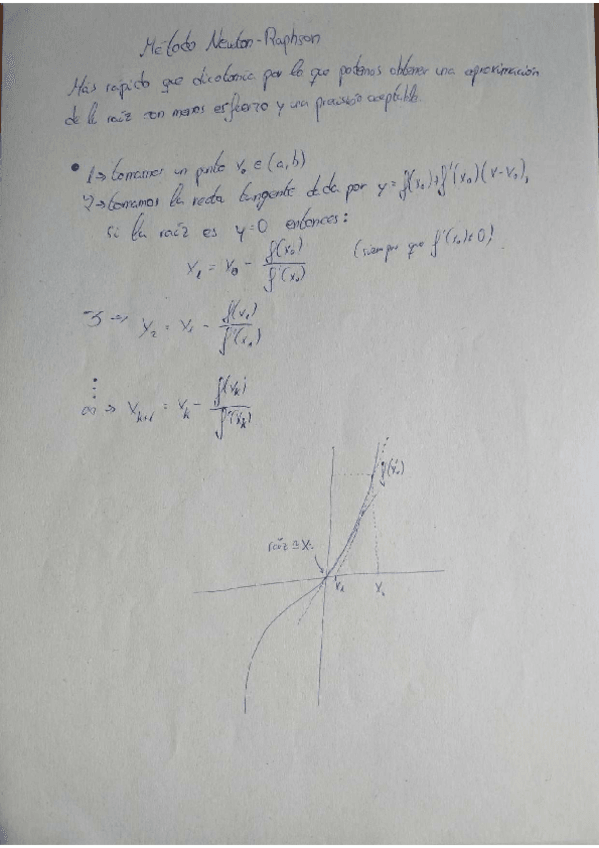 Método Newton-Raphson
Más rápido que dicotomia por lo que podemos obtener una aproximación
de la raíz con menos esfuerzo y una precisión aceptable.
• 1→ tomamos un punto x₀ ∈ (a,b)
2→ tomamos la recta tangente dada por y = f(x₀) + f'(x₀)(x-x₀),
si la raíz es y=0 entonces:
x₁ = x₀ - f(x₀)/f'(x₀) (siempre que f'(x₀)≠0)
3→ x₂ = x₁ - f(x₁)/f'(x₁)
⋮
⇒ xₖ₊₁ = xₖ - f(xₖ)/f'(xₖ)
f(x₀)
raíz ≅ x
x₁ x₀